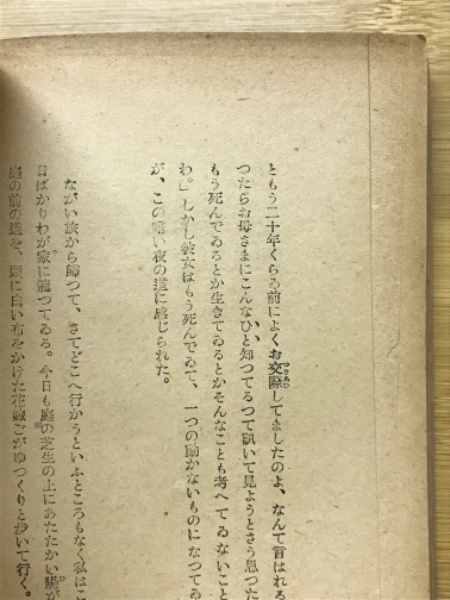 ともう二十年くらゐ前によくお交際してましたのよ、なんて言はれる
つたらお母さまにこんなひと知つてるつて訊いて見ようとさう思つた
もう死んでゐるとか生きてゐるとかそんなことも考へてゐないこと
わ。」しかし彼女はもう死んでゐて、一つの動かないものになつてゐ
が、この暗い夜の道に感じられた。
ながい旅から歸つて、さてどこへ行かうといふところもなく私はこ
日ばかりわが家に籠つてゐる。今日も庭の芝生の上にあたたかい陽が
庭の前の道を、頭に白い布をかけた花嫁ごがゆつくりと歩いて行く。